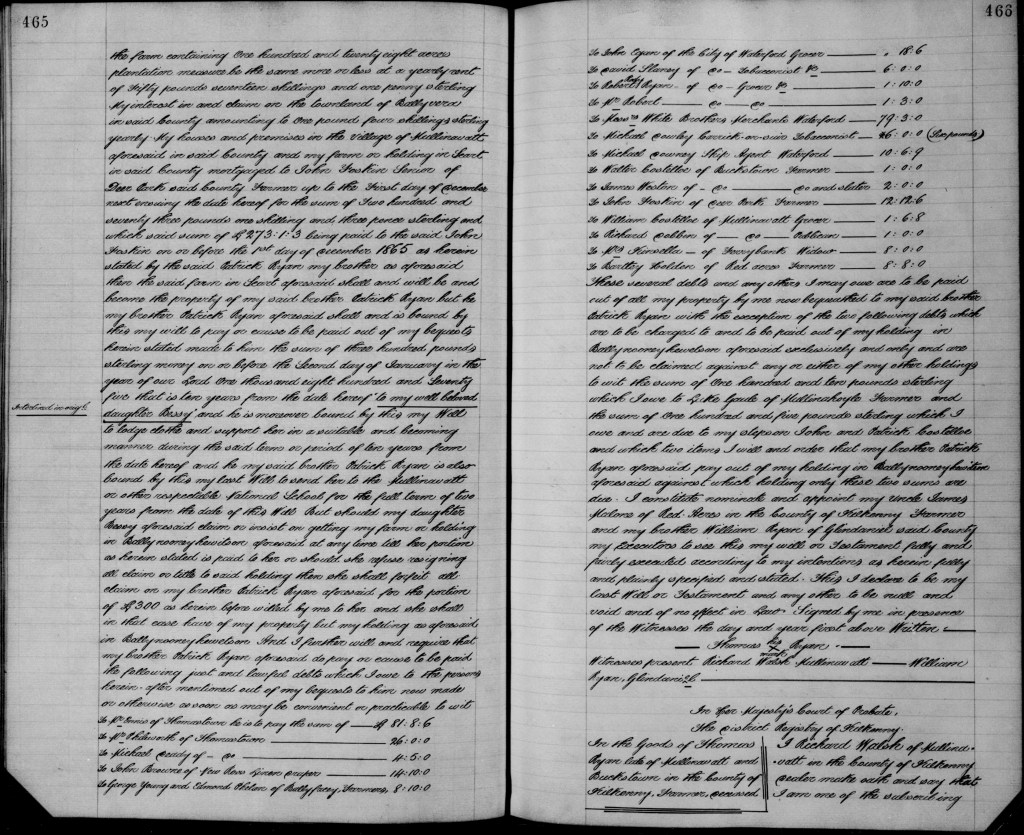 465
the farm containing One hundred and twenty eight acres
plantation measure be the same more or less at a yearly rent
of Fifty pounds seventeen skillings and one penny sterling
My interest in and claim on the townland of Ballyvera
in said County amounting to One pound four skillings sterling
yearly My houses and premises in the Village of Mullinavatt
aforesaid in said County and my farm or holding in Scart
in said County mortgaged to John Foskin Senior of
Deer Park said County Farmer up to the First day of December
next ensuing the date hereof for the sum of Two hundred and
seventy three pounds one shilling and three pence sterling and
which said sum of £273:1:3 being paid to the said John
Foskin on or before the 1st day of December 1865 as herein
stated by the said Patrick Ryan my brother as aforesaid
then the said farm in Scart aforesaid shall and will be and
become the property of my said brother Patrick Ryan but he
my brother Patrick Ryan aforesaid shall and is bound by
this my will to pay or cause to be paid out of my bequests
herein stated made to him the sum of three hundred pounds
sterling money on or before the Second day of January in the
year of our Lord One thousand eight hundred and Seventy
five that is ten years from the date hereof to my well beloved
daughter Bessy and he is moreover bound by this my Will
to lodge clothe and support her in a suitable and becoming
manner during the said term or period of ten years from
the date hereof and he my said brother Patrick Ryan is also
bound by this my last Will to send her to the Mullinavatt
or other respectable National School for the full term of two
years from the date of this Will But should my daughter
Bessy aforesaid claim or insist on getting my farm or holding
in Ballynooneyhewitson aforesaid at any time till her portion
as herein stated is paid to her or should she refuse resigning
all claim or title to said holding then she shall forfeit all
claim on my brother Patrick Ryan aforesaid for the portion
of £300 as herein before willed by me to her and she shall
in that case have of my property but my holding as aforesaid
in Ballynooneyhewetson And I further will and require that
my brother Patrick Ryan aforesaid do pay or cause to be paid
the following just and lawful debts which I owe to the persons
herein after mentioned out of my bequests to him now made
or otherwise as soon as may be convenient or practicable to wit
To Mr Innis of Thomastown he is to pay the sum of £ 81:8:6
To Mr of Thomastown 26:0:0
To Michael Cready of do 4:5:0
To John Browne of New Ross Linen Draper 14:10:0
To George Young and Edmond Phelan of Ballyfacey, Farmers, 8:10:0
466
To John Egan of the City of Waterford Grocer " 18:6
To David Slaney of do Tobacconist Do 6:0:0
To Robert Ryan of do Grocer Do 1:10:0
To Mr Robert do do 1:3:0
To Messrs White Brothers Merchants Waterford 79:3:0
To Michael Cowley Carrick-on-suir Tobacconist 46:0:0
To Michael Downey Ship Agent Waterford 10:6:9
To Walter Costelloe of Buckstown Farmer 1:0:0
To James Weston of do do and slater 2:0:0
To John Foskin of Deer Park Farmer 12:12:6
To William Costelloe of Mullinavatt Grocer 1:6:8
To Richard Dobbin of do Publican 1:0:0
To Mrs Kinsella of Ferrybank Widow 8:0:0
To Bartley Holden of Red acres Farmer 8:8:0
These several debts and any others I may owe are to be paid
out of all my property by me now bequeathed to my said brother
Patrick Ryan with the exception of the two following debts which
are to be charged to and to be paid out of my holding in
Ballynooneyhewetson aforesaid exclusively and only and are
not to be claimed against any or either of my other holdings
to wit the sum of One hundred and ten pounds sterling
which I owe to Luke Gaule of Mullinahoyle Farmer and
the sum of One hundred and five pounds sterling which I
owe and are due to my stepson John and Patrick Costelloe
and which two items I will and order that my brother Patrick
Ryan aforesaid pay out of my holding in Ballynooneyhewetson
aforesaid against which holding only these two sums are
due. I constitute nominate and appoint my Uncle James
Malone of Red Acres in the County of Kilkenny Farmer
and my brother William Ryan of Glendaniel said County
my Executors to see this my will or Testament fully and
fairly executed according to my intentions as herein fully
and plainly specified and stated. This I declare to be my
last Will or Testament and any other to be null and
void and of no effect in Law. Signed by me in presence
of the Witnesses the day and year first above Written
Thomas his X mark Ryan
Witnesses present Richard Walsh Mullinavatt William
Ryan, Glendaniel
In Her Majesty's Court of Probate,
The District Registry of Kilkenny
In the Goods of Thomas
Ryan late of Mullinavatt and
Buckstown in the County of
Kilkenny, Farmer, deceased
I Richard Walsh of Mullina-
-vatt in the County of Kilkenny
Dealer make oath and say that
I am one of the subscribing